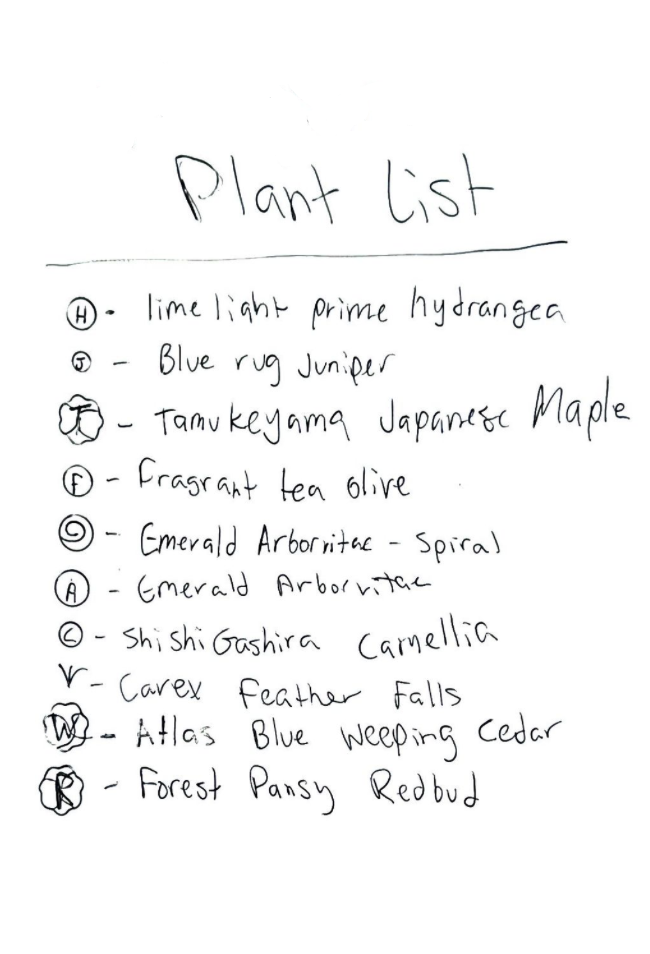 Plant list
H - lime light prime hydrangea
J - Blue rug Juniper
T - Tamukeyama Japanese Maple
F - Fragrant tea olive
- Emerald Arborvitae - Spiral
A - Emerald Arborvitae
C - Shi Shi Gashira Camellia
V - Carex Feather Falls
W - Atlas Blue Weeping Cedar
R - Forest Pansy Redbud